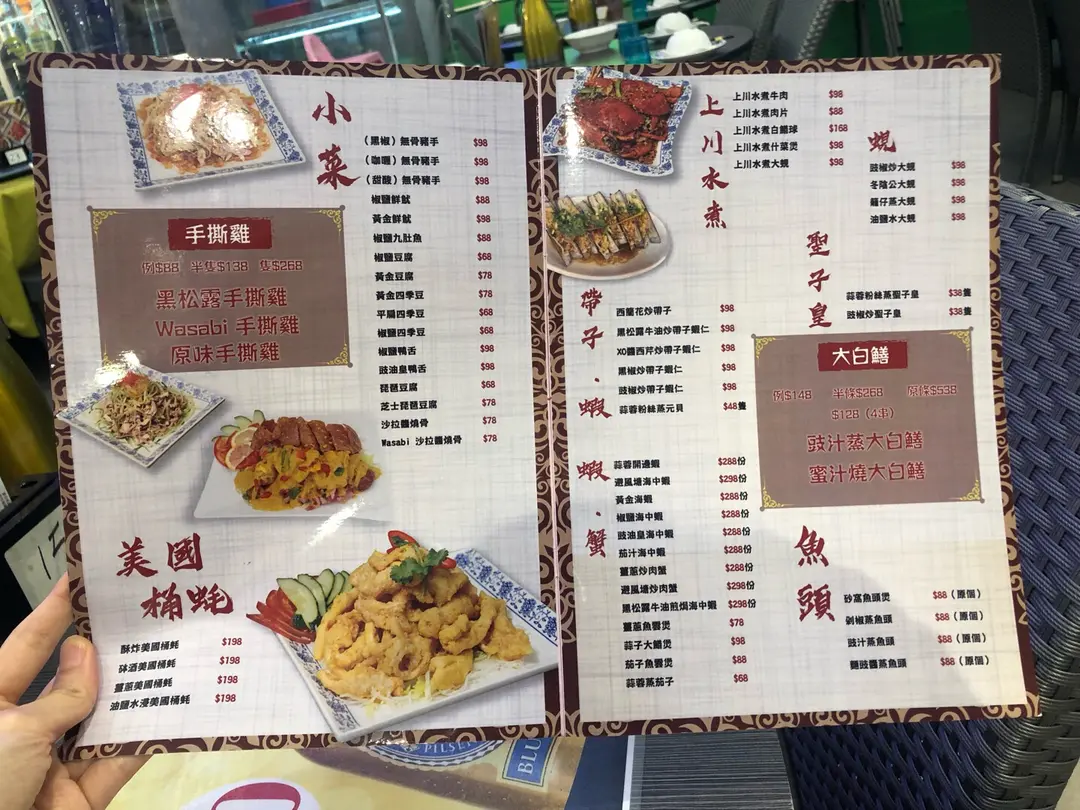 小菜
(黑椒)無骨豬手 $98
(咖喱)無骨豬手 $98
(甜酸)無骨豬手 $98
椒鹽鮮魷 $88
黃金鮮魷 $98
椒鹽九肚魚 $88
椒鹽豆腐 $68
黃金豆腐 $78
黃金四季豆 $78
干扁四季豆 $68
椒鹽四季豆 $68
椒鹽鴨舌 $98
豉油皇鴨舌 $98
琵琶豆腐 $68
芝士琵琶豆腐 $78
沙拉醬燒骨 $78
Wasabi 沙拉醬燒骨 $78
手撕雞
例$88 半隻$138 隻$268
黑松露手撕雞
Wasabi 手撕雞
原味手撕雞
美國桶蚝
酥炸美國桶蚝 $198
砵酒美國桶蚝 $198
薑蔥美國桶蚝 $198
油鹽水浸美國桶蚝 $198
上川水煮
上川水煮牛肉 $98
上川水煮肉片 $88
上川水煮白鱔球 $168
上川水煮什菜煲 $98
上川水煮大蜆 $98
蜆
豉椒炒大蜆 $98
冬陰公大蜆 $98
籠仔蒸大蜆 $98
油鹽水大蜆 $98
聖子皇
蒜蓉粉絲蒸聖子皇 $38隻
豉椒炒聖子皇 $38隻
帶子·蝦
西蘭花炒帶子 $98
黑松露牛油炒帶子蝦仁 $98
XO醬西芹炒帶子蝦仁 $98
黑椒炒帶子蝦仁 $98
豉椒炒帶子蝦仁 $98
蒜蓉粉絲蒸元貝 $48隻
大白鱔
例$148 半條$268 原條$538
$128 (4串)
豉汁蒸大白鱔
蜜汁燒大白鱔
蝦·蟹
蒜蓉開邊蝦 $288份
避風塘海中蝦 $298份
黃金海蝦 $288份
椒鹽海中蝦 $288份
豉油皇海中蝦 $288份
茄汁海中蝦 $288份
薑蔥炒肉蟹 $288份
避風塘炒肉蟹 $298份
黑松露牛油煎焗海中蝦 $298份
薑蔥魚雲煲 $78
蒜子大鱔煲 $98
茄子魚雲煲 $88
蒜蓉蒸茄子 $68
魚頭
砂窩魚頭煲 $88(原個)
剁椒蒸魚頭 $88(原個)
豉汁蒸魚頭 $88(原個)
麵豉醬蒸魚頭 $88(原個)
PILSE
BLU